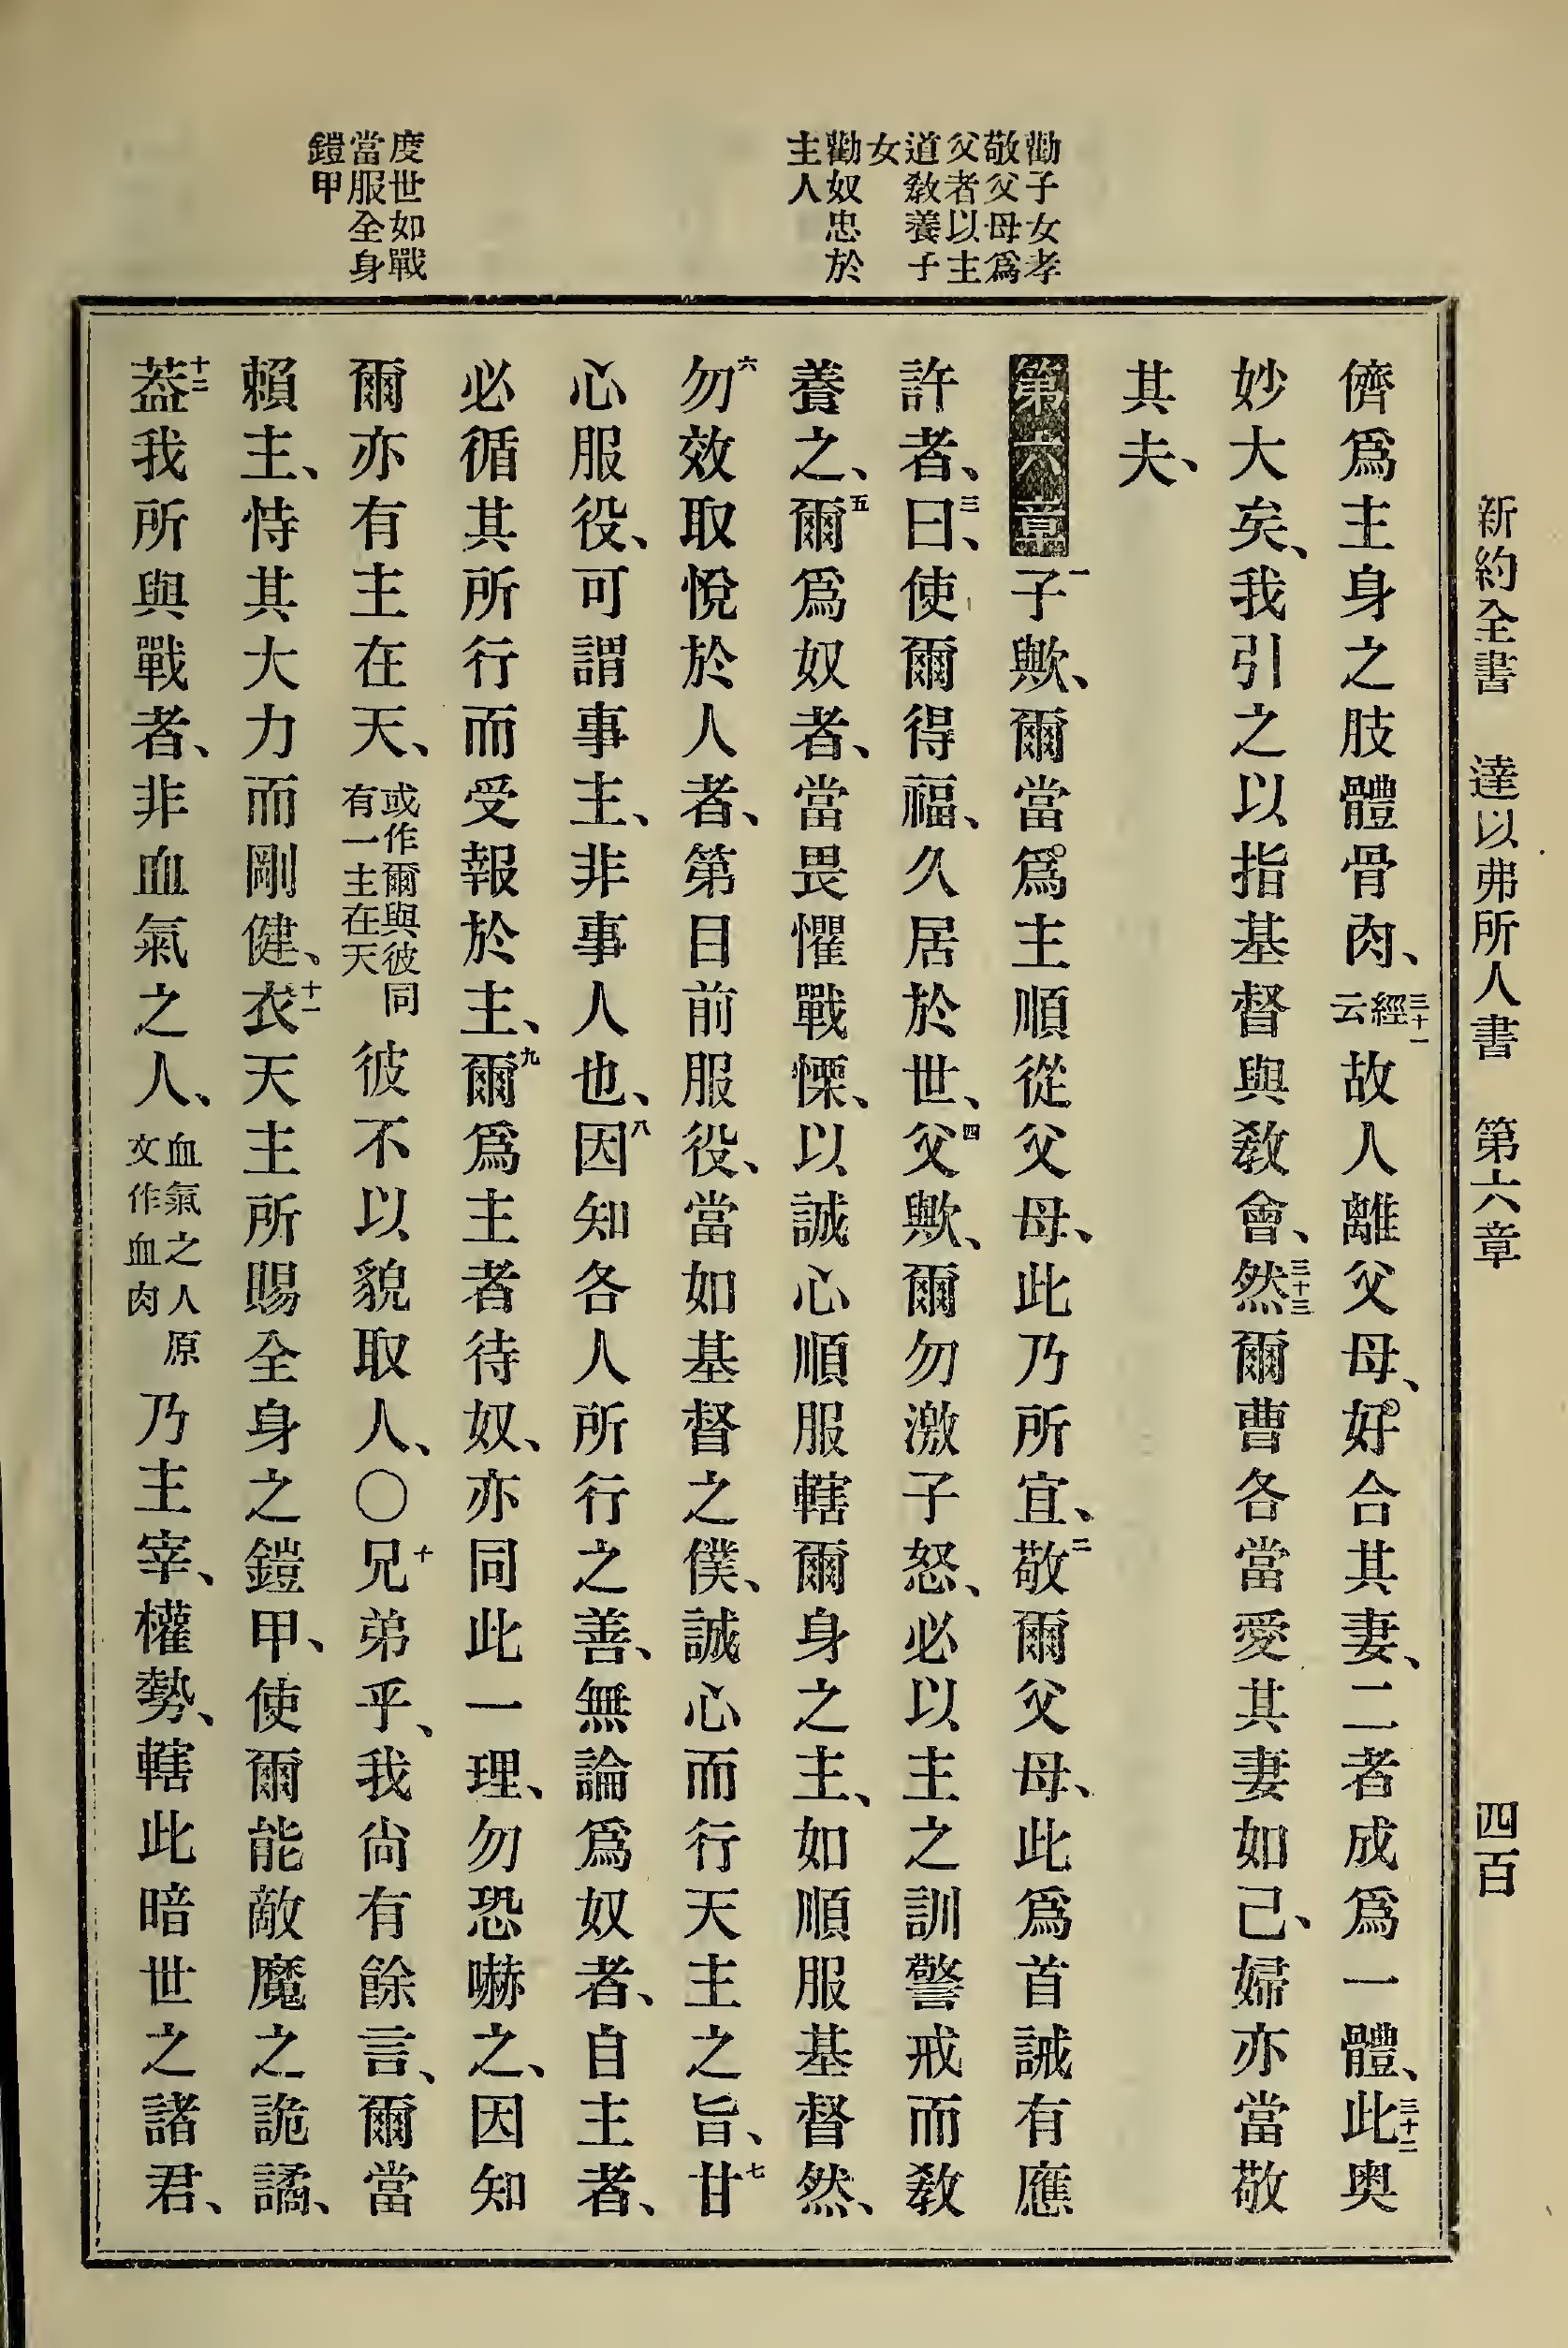 新約全書　達以弗所人書　第六章　四百
勸子女孝
敬父母爲
父者以主
道敎養子
女
勸奴忠於
主人
度世如戰
當服全身
鎧甲
儕爲主身之肢體骨肉、三十一經云故人離父母、好合其妻、二者成爲一體、三十二此奧
妙大矣、我引之以指基督與敎會、三十三然爾曹各當愛其妻如己、婦亦當敬
其夫、
第六章一子歟、爾當爲主順從父母、此乃所宜、二敬爾父母、此爲首誡有應
許者、三曰、使爾得福、久居於世、四父歟、爾勿激子怒、必以主之訓警戒而敎
養之、五爾爲奴者、當畏懼戰慄、以誠心順服轄爾身之主、如順服基督然、
六勿效取悅於人者、第目前服役、當如基督之僕、誠心而行天主之旨、七甘
心服役、可謂事主、非事人也、八因知各人所行之善、無論爲奴者、自主者、
必循其所行而受報於主、九爾爲主者待奴、亦同此一理、勿恐嚇之、因知
爾亦有主在天、或作爾與彼同有一主在天彼不以貌取人、〇十兄弟乎、我尙有餘言、爾當
賴主、恃其大力而剛健、十一衣天主所賜全身之鎧甲、使爾能敵魔之詭譎、
十二蓋我所與戰者、非血氣之人、血氣之人原文作血肉乃主宰、權勢、轄此暗世之諸君、